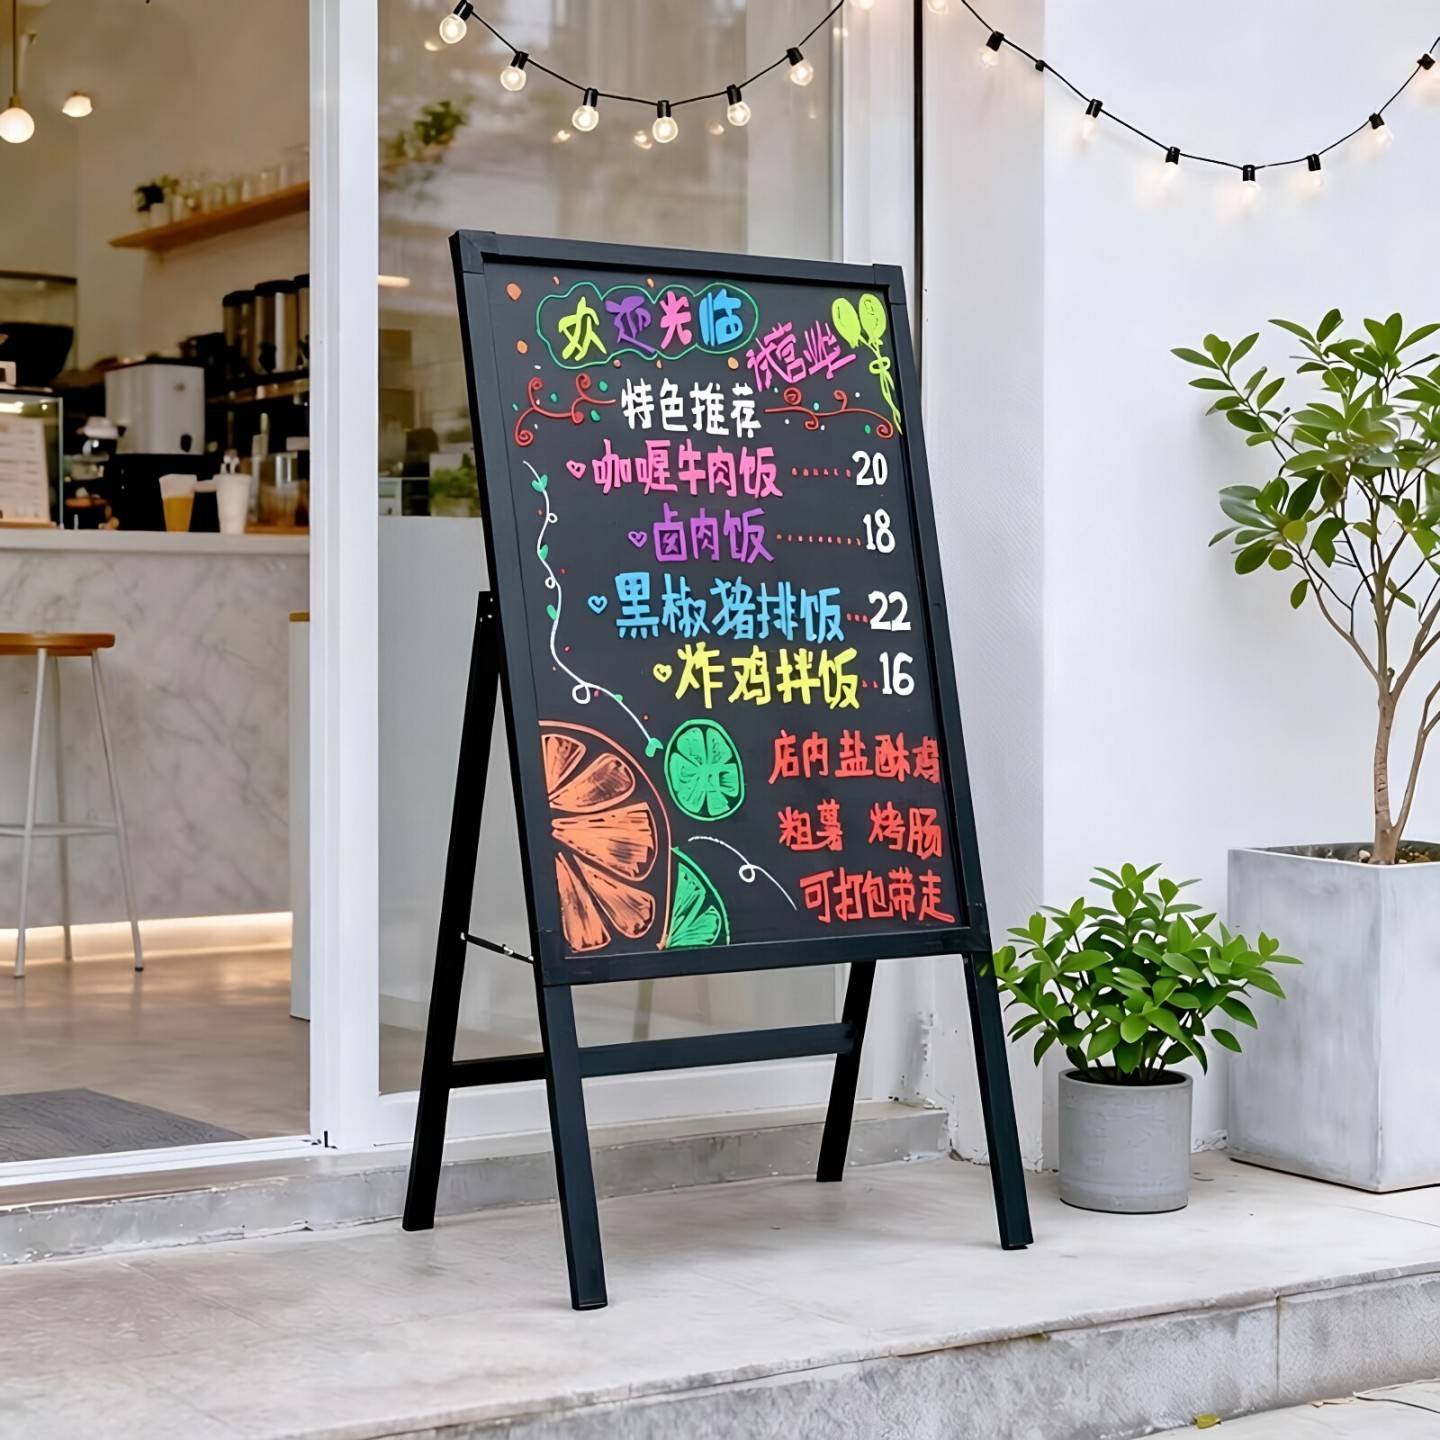 欢迎光临
试营业
特色推荐
咖喱牛肉饭 20
卤肉饭 18
黑椒猪排饭 22
炸鸡拌饭 16
店内盐酥鸡
粗薯 烤肠
可打包带走